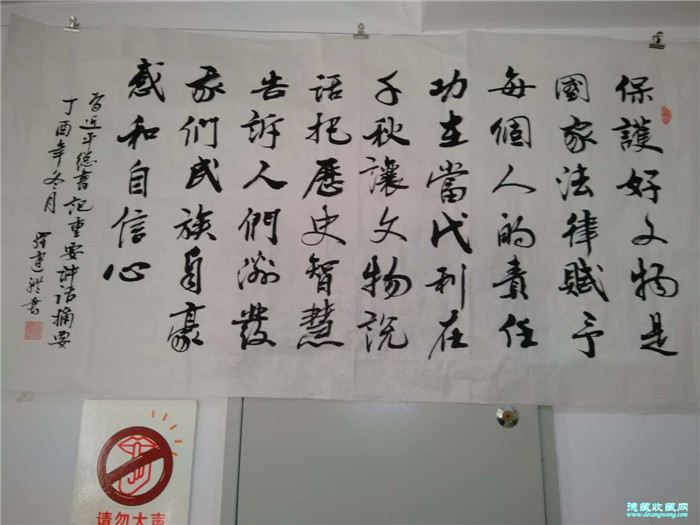 保護好文物是
國家法律賦予
每個人的責任
功在當代利在
千秋讓文物説
話把歷史智慧
告訴人們激發
我們民族自豪
感和自信心
习近平總書記重要讲话摘要
丁酉年冬月
羅建
書
请勿大声
德藏收藏网
www.decangwang.com